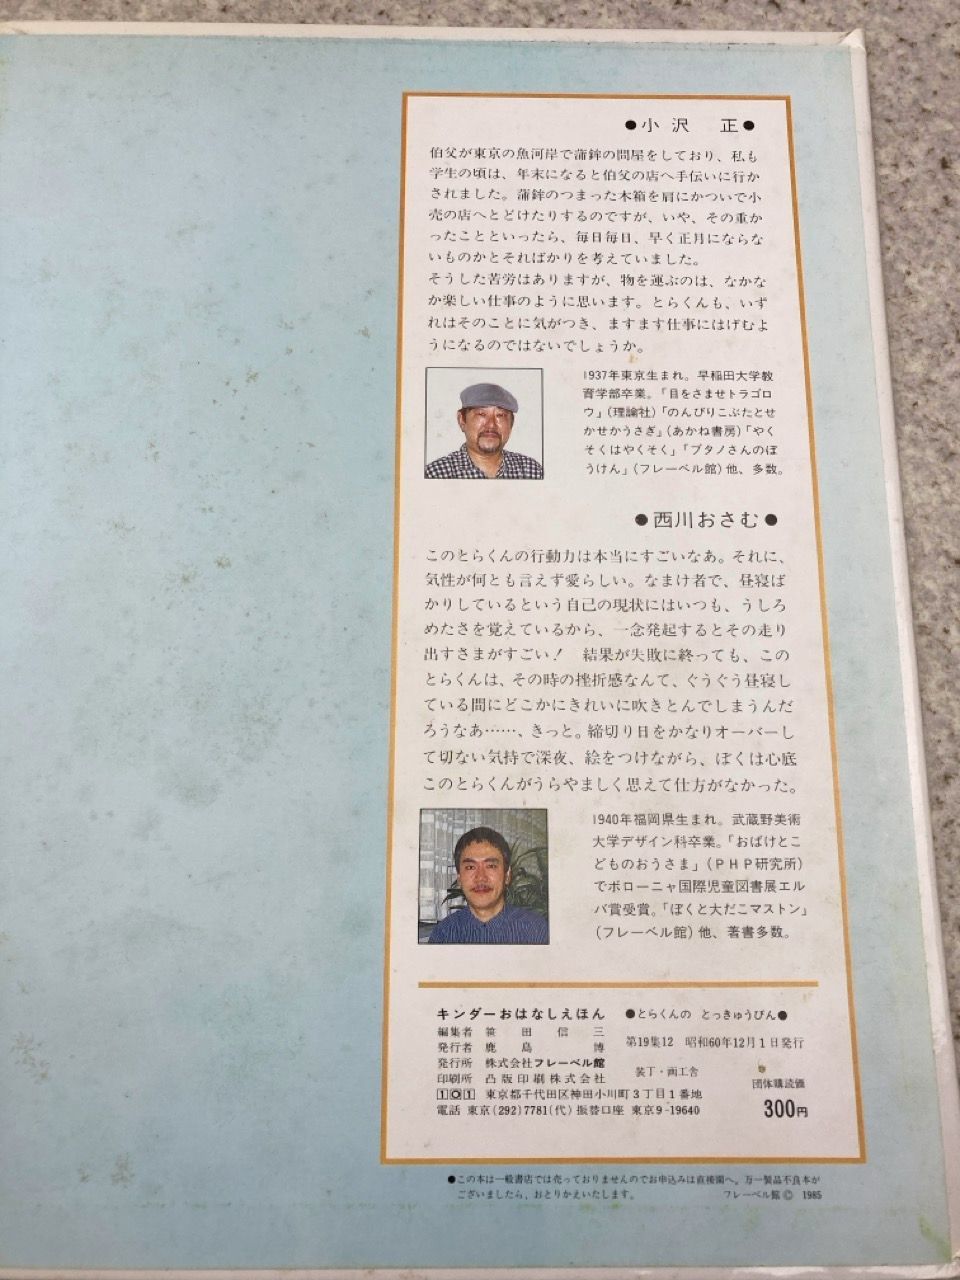 ●小沢 正●
伯父が東京の魚河岸で蒲鉾の問屋をしており、私も
学生の頃は、年末になると伯父の店へ手伝いに行か
されました。蒲鉾のつまった木箱を肩にかついで小
売の店へとどけたりするのですが、いや、その重か
ったことといったら、毎日毎日、早く正月にならな
いものかとそればかりを考えていました。
そうした苦労はありますが、物を運ぶのは、なかな
か楽しい仕事のように思います。とらくんも、いず
れはそのことに気がつき、ますます仕事にはげむよ
うになるのではないでしょうか。
1937年東京生まれ。早稲田大学教
育学部卒業。「目をさませトラゴロ
ウ」(理論社)「のんびりこぶたとせ
かせかうさぎ」(あかね書房)「やく
そくはやくそく」「ブタノさんのぼ
うけん」(フレーベル館)他、多数。
●西川おさむ●
このとらくんの行動力は本当にすごいなあ。それに、
気性が何とも言えず愛らしい。なまけ者で、昼寝ば
かりしているという自己の現状にはいつも、うしろ
めたさを覚えているから、一念発起するとその走り
出すさまがすごい! 結果が失敗に終っても、この
とらくんは、その時の挫折感なんて、ぐうぐう昼寝し
ている間にどこかにきれいに吹きとんでしまうんだ
ろうなあ……、きっと。締切り日をかなりオーバーし
て切ない気持で深夜、絵をつけながら、ぼくは心底
このとらくんがうらやましく思えて仕方がなかった。
1940年福岡県生まれ。武蔵野美術
大学デザイン科卒業。「おばけとこ
どものおうさま」(PHP研究所)
でボローニャ国際児童図書展エル
バ賞受賞。「ぼくと大だこマストン」
(フレーベル館)他、著書多数。
キンダーおはなしえほん ●とらくんの とっきゅうびん●
編集者 笹田信三
発行者 鹿島博 第19集12 昭和60年12月1日発行
発行所 株式会社フレーベル館
印刷所 凸版印刷株式会社 装丁・画工舎
101 東京都千代田区神田小川町3丁目1番地 団体購読価
電話 東京(292)7781(代)振替口座 東京9-19640 300円
●この本は一般書店では売っておりませんのでお申込みは直接園へ。万一製品不良本が
ございましたら、おとりかえいたします。 フレーベル館© 1985